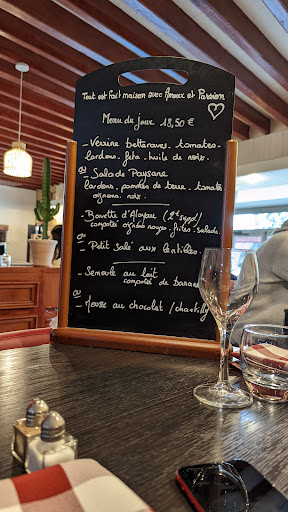 Tout est fait maison avec Amour et Passion
Menu du jour 18,50 €
- Verrine betteraves, tomates.
lardons, feta, huile de noix.
ou
- Salade Paysane
lardons, pommes de terre, tomates
oignons, noix.
- Bavette d'Aloyau
compotée oignons rouges, frites, salade.
ou
- Petit Salé aux lentilles.
- Semoule au lait
compotée de banane
ou
- Mousse au chocolat / chantilly